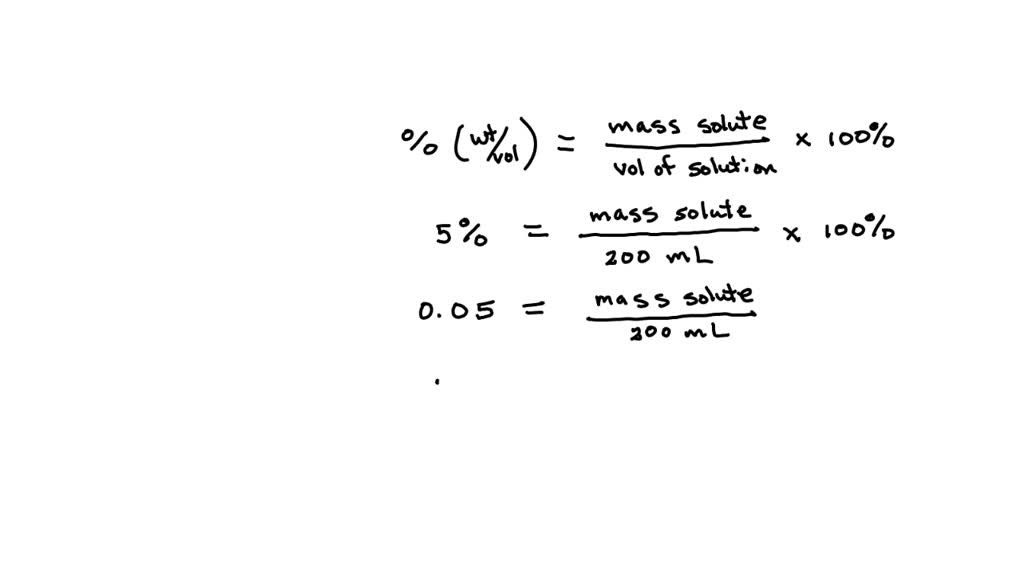 % (wt/vol) = mass solute / vol of solution x 100%
5% = mass solute / 200 mL x 100%
0.05 = mass solute / 200 mL
.